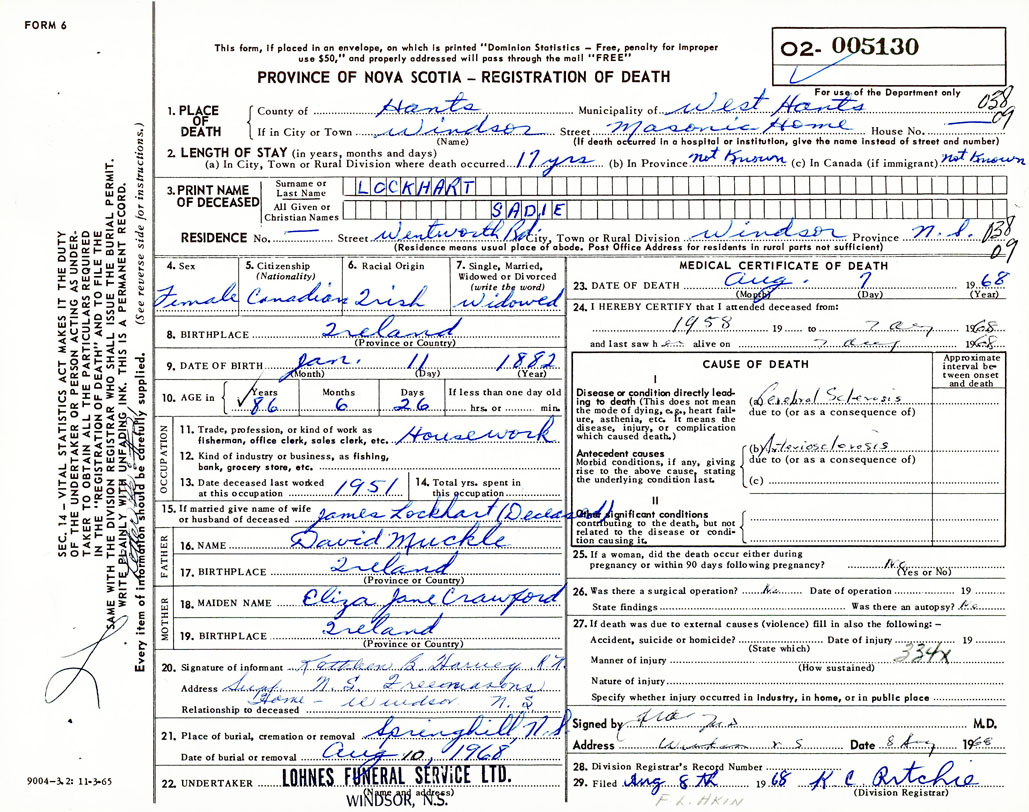 FORM 6
This form, if placed in an envelope, on which is printed "Dominion Statistics – Free, penalty for improper
use $50," and properly addressed will pass through the mail "FREE"
PROVINCE OF NOVA SCOTIA – REGISTRATION OF DEATH
02- 005130
For use of the Department only
038
09
1. PLACE OF DEATH
County of Hants Municipality of West Hants
If in City or Town Windsor Street Masonic Home House No.
(Name) (If death occurred in a hospital or institution, give the name instead of street and number)
2. LENGTH OF STAY (in years, months and days)
(a) In City, Town or Rural Division where death occurred 17 yrs (b) In Province not Known (c) In Canada (if immigrant) not Known
3. PRINT NAME OF DECEASED
Surname or Last Name LOCKHART
All Given or Christian Names SADIE
RESIDENCE No. — Street Wentworth Rd. City, Town or Rural Division Windsor Province N.S. 038
(Residence means usual place of abode. Post Office Address for residents in rural parts not sufficient) 09
4. Sex
Female
5. Citizenship (Nationality)
Canadian
6. Racial Origin
Irish
7. Single, Married, Widowed or Divorced (write the word)
Widowed
8. BIRTHPLACE Ireland
(Province or Country)
9. DATE OF BIRTH Jan. 11 1882
(Month) (Day) (Year)
10. AGE in
Years 86
Months 6
Days 26
If less than one day old
hrs. or min.
OCCUPATION
11. Trade, profession, or kind of work as
fisherman, office clerk, sales clerk, etc. Housework
12. Kind of industry or business, as fishing,
bank, grocery store, etc.
13. Date deceased last worked
at this occupation 1951
14. Total yrs. spent in
this occupation
15. If married give name of wife
or husband of deceased James Lockhart (Deceased)
FATHER
16. NAME David Muckle
17. BIRTHPLACE Ireland
(Province or Country)
MOTHER
18. MAIDEN NAME Eliza Jane Crawford
19. BIRTHPLACE Ireland
(Province or Country)
20. Signature of informant Kathleen B. Harvey R.N.
Address Supt. N.S. Freemasons
Home – Windsor N.S.
Relationship to deceased
21. Place of burial, cremation or removal Springhill, N.S.
Date of burial or removal Aug 10, 1968
22. UNDERTAKER LOHNES FUNERAL SERVICE LTD.
(Name and address)
WINDSOR, N.S.
MEDICAL CERTIFICATE OF DEATH
23. DATE OF DEATH Aug. 7 1968
(Month) (Day) (Year)
24. I HEREBY CERTIFY that I attended deceased from:
1958 19 to 7 Aug 1968
and last saw her alive on 7 Aug 1968
CAUSE OF DEATH
Approximate interval between onset and death
I
Disease or condition directly leading
to death (This does not mean
the mode of dying, e.g., heart failure,
asthenia, etc. It means the
disease, injury, or complication
which caused death.)
(a) Cerebral Sclerosis
due to (or as a consequence of)
Antecedent causes
Morbid conditions, if any, giving
rise to the above cause, stating
the underlying condition last.
(b) Arteriosclerosis
due to (or as a consequence of)
(c)
II
Other significant conditions
contributing to the death, but not
related to the disease or condition
causing it.
25. If a woman, did the death occur either during
pregnancy or within 90 days following pregnancy? No
(Yes or No)
26. Was there a surgical operation? No Date of operation 19
State findings Was there an autopsy? No
27. If death was due to external causes (violence) fill in also the following: –
Accident, suicide or homicide? Date of injury 19
(State which)
334X
Manner of injury
(How sustained)
Nature of injury
Specify whether injury occurred in Industry, in home, or in public place
Signed by M.D.
Address Windsor N S Date 8 Aug 1968
28. Division Registrar's Record Number
29. Filed Aug 8th 1968 K C Ritchie
(Division Registrar)
F L AKIN
9004-3.2: 11-3-65
SEC. 14 – VITAL STATISTICS ACT MAKES IT THE DUTY
OF THE UNDERTAKER OR PERSON ACTING AS UNDERTAKER
TO OBTAIN ALL THE PARTICULARS REQUIRED
IN THE "REGISTRATION OF DEATH" AND TO FILE THE
SAME WITH THE DIVISION REGISTRAR WHO SHALL ISSUE THE BURIAL PERMIT.
WRITE PLAINLY WITH UNFADING INK. THIS IS A PERMANENT RECORD.
Every item of information should be carefully supplied. (See reverse side for instructions.)